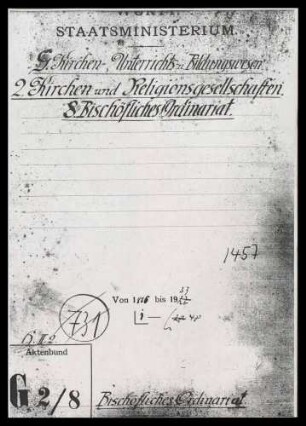 STAATSMINISTERIUM.
G. Kirchen-, Unterrichts- u. Bildungswesen.
2. Kirchen und Religionsgesellschaften.
8. Bischöfliches Ordinariat.
1457
Von bis 19
731
Aktenbund
G 2/8
Bischöfliches Ordinariat